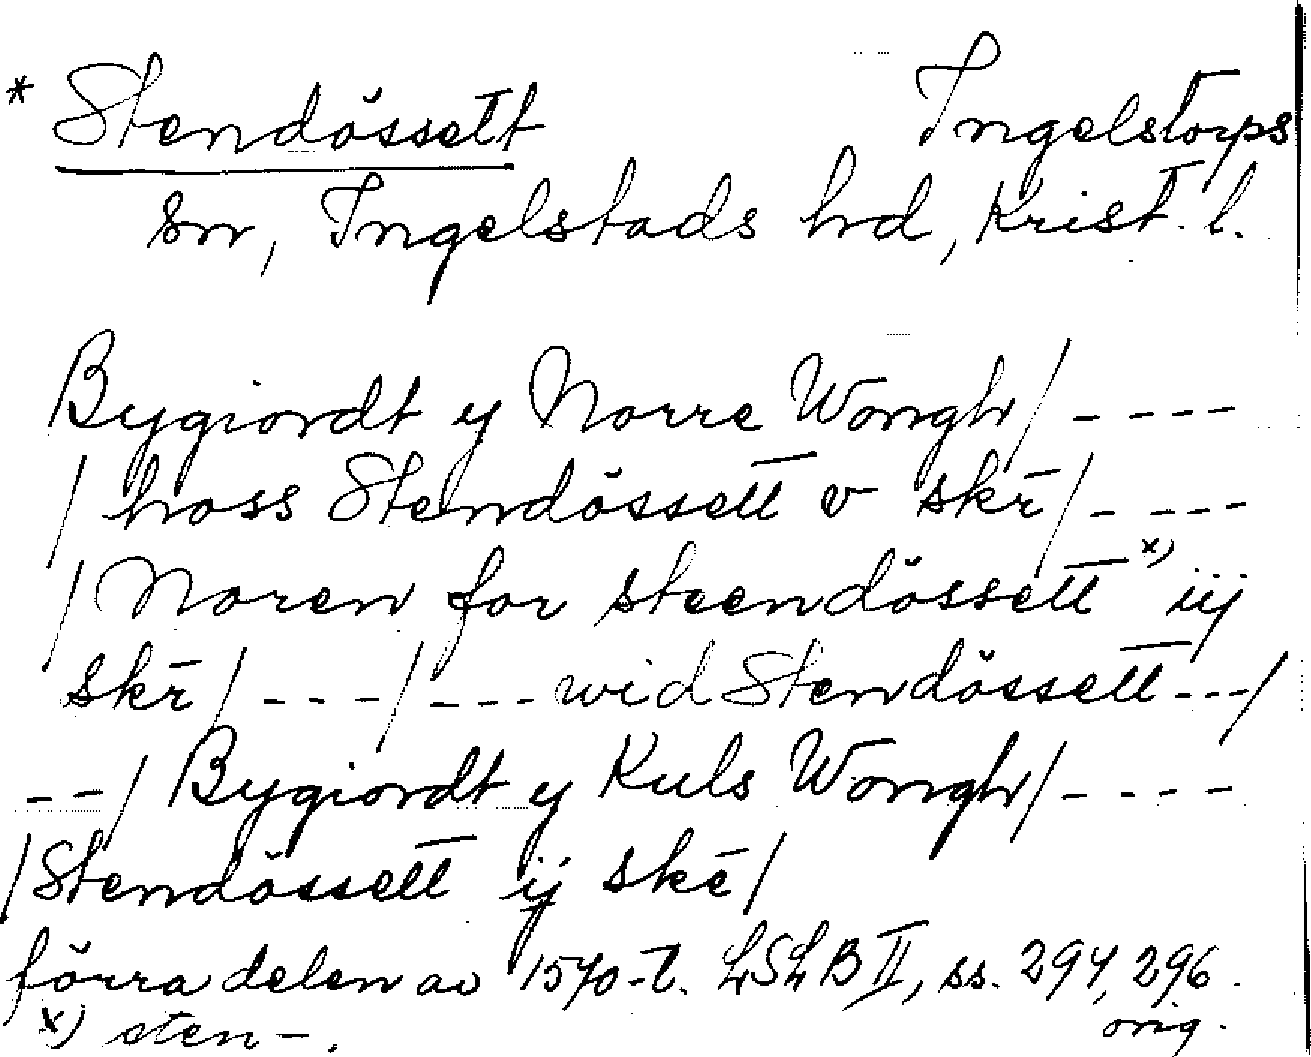 * Stendössett Ingelstorps
sn, Ingelstads hd, Krist. l.
Bygiordt y Norre Wongh/ ----
/ hoss Stendössett v skr̄/ ----
/ Noren for steendössett x) iij
skr̄/ ---/ --- wid Stendössett ---/
--/ Bygiordt y Kuls Wongh/ ----
/Stendössett ij skē/
förra delen av 1570-t. LSLB II, ss. 294, 296.
orig.
x) sten-.